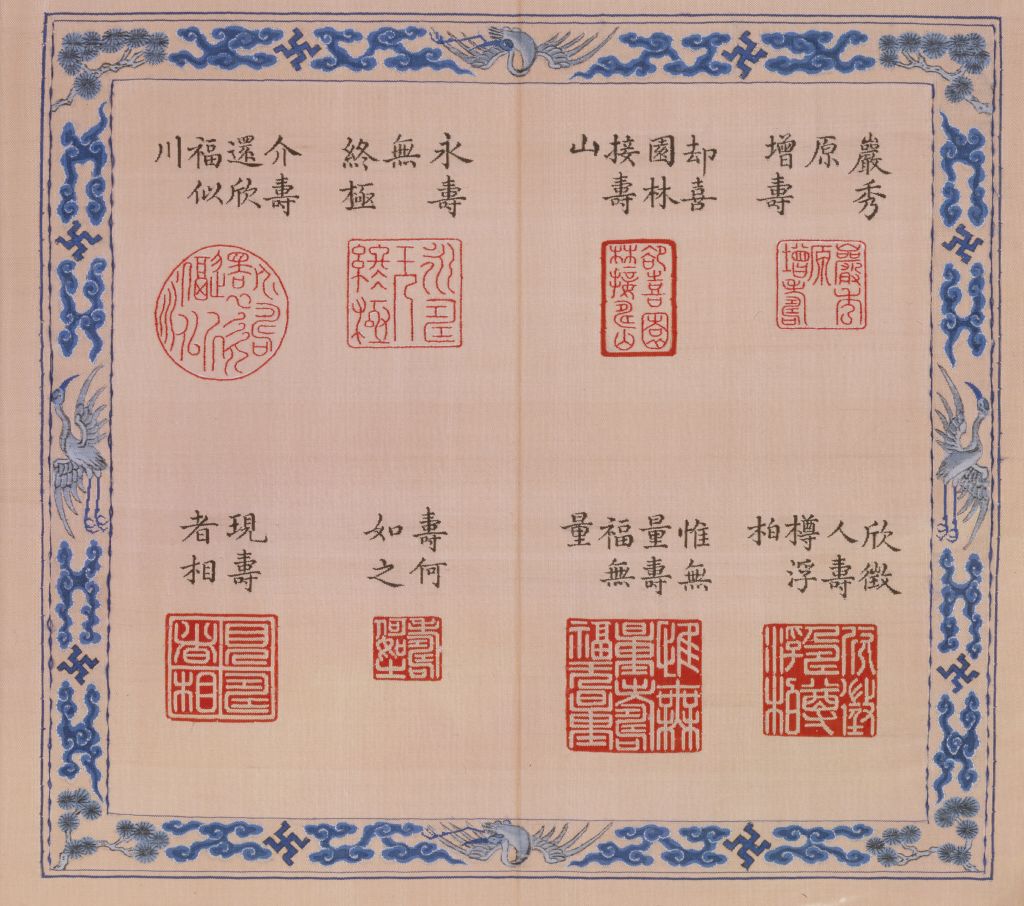 巖秀
原
增壽
却喜
園林
接壽
山
永壽
無
終極
介壽
還欣
福似
川
欣徵
人壽
樽浮
柏
惟無
量壽
福無
量
壽何
如之
現壽
者相